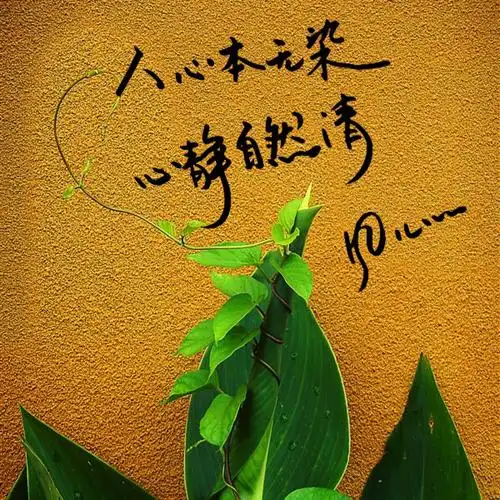 人心本无染
心静自然清